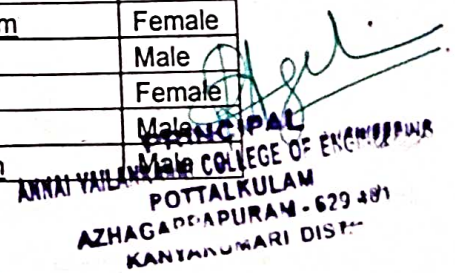 m Female
Male
Female
Male
Male
PRINCIPAL
ANNAI VAILANKANNI COLLEGE OF ENGINEERING
POTTALKULAM
AZHAGAPPAPURAM - 629 401
KANYAKUMARI DIST